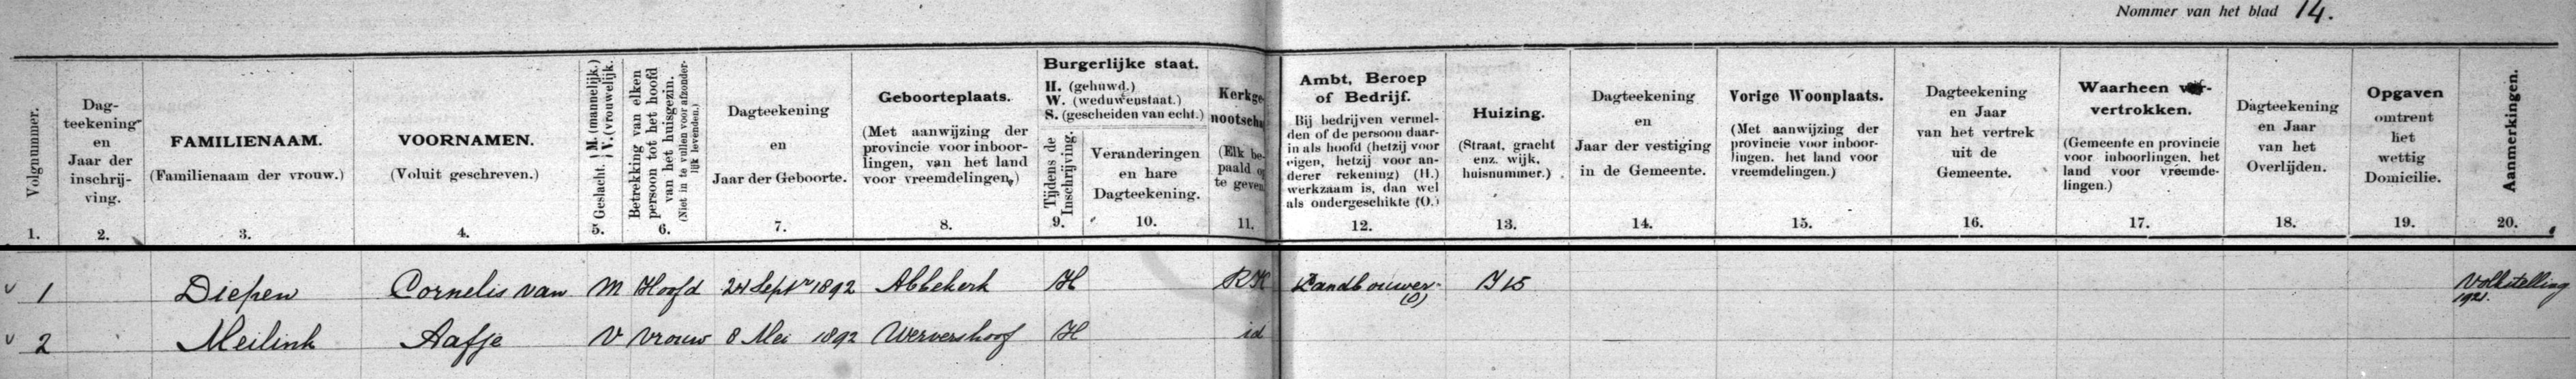 Nommer van het blad 14.
Volgnummer.
1.
Dag-
teekening
en
Jaar der
inschrij-
ving.
2.
FAMILIENAAM.
(Familienaam der vrouw.)
3.
VOORNAMEN.
(Voluit geschreven.)
4.
Geslacht. { M. (mannelijk.)
V. (vrouwelijk.
5.
Betrekking van elken
persoon tot het hoofd
van het huisgezin.
(Niet in te vullen voor afzonder-
lijk levenden.)
6.
Dagteekening
en
Jaar der Geboorte.
7.
Geboorteplaats.
(Met aanwijzing der
provincie voor inboor-
lingen, van het land
voor vreemdelingen.)
8.
Burgerlijke staat.
H. (gehuwd.)
W. (weduwenstaat.)
S. (gescheiden van echt.)
Tijdens de
Inschrijving.
9.
Veranderingen
en hare
Dagteekening.
10.
Kerkge-
nootscha
(Elk be-
paald op
te geven
11.
Ambt, Beroep
of Bedrijf.
Bij bedrijven vermel-
den of de persoon daar-
in als hoofd (hetzij voor
eigen, hetzij voor an-
derer rekening) (H.)
werkzaam is, dan wel
als ondergeschikte (O.)
12.
Huizing.
(Straat, gracht
enz. wijk,
huisnummer.)
13.
Dagteekening
en
Jaar der vestiging
in de Gemeente.
14.
Vorige Woonplaats.
(Met aanwijzing der
provincie voor inboor-
lingen. het land voor
vreemdelingen.)
15.
Dagteekening
en Jaar
van het vertrek
uit de
Gemeente.
16.
Waarheen ver-
vertrokken.
(Gemeente en provincie
voor inboorlingen, het
land voor vreemde-
lingen.)
17.
Dagteekening
en Jaar
van het
Overlijden.
18.
Opgaven
omtrent
het
wettig
Domicilie.
19.
Aanmerkingen.
20.
v 1 Diepen Cornelis van M Hoofd 24 Septr 1892 Abbekerk H RK Landbouwer (O) I 15 Volkstelling 1921.
v 2 Meilink Aafje V Vrouw 8 Mei 1892 Wervershoof H id